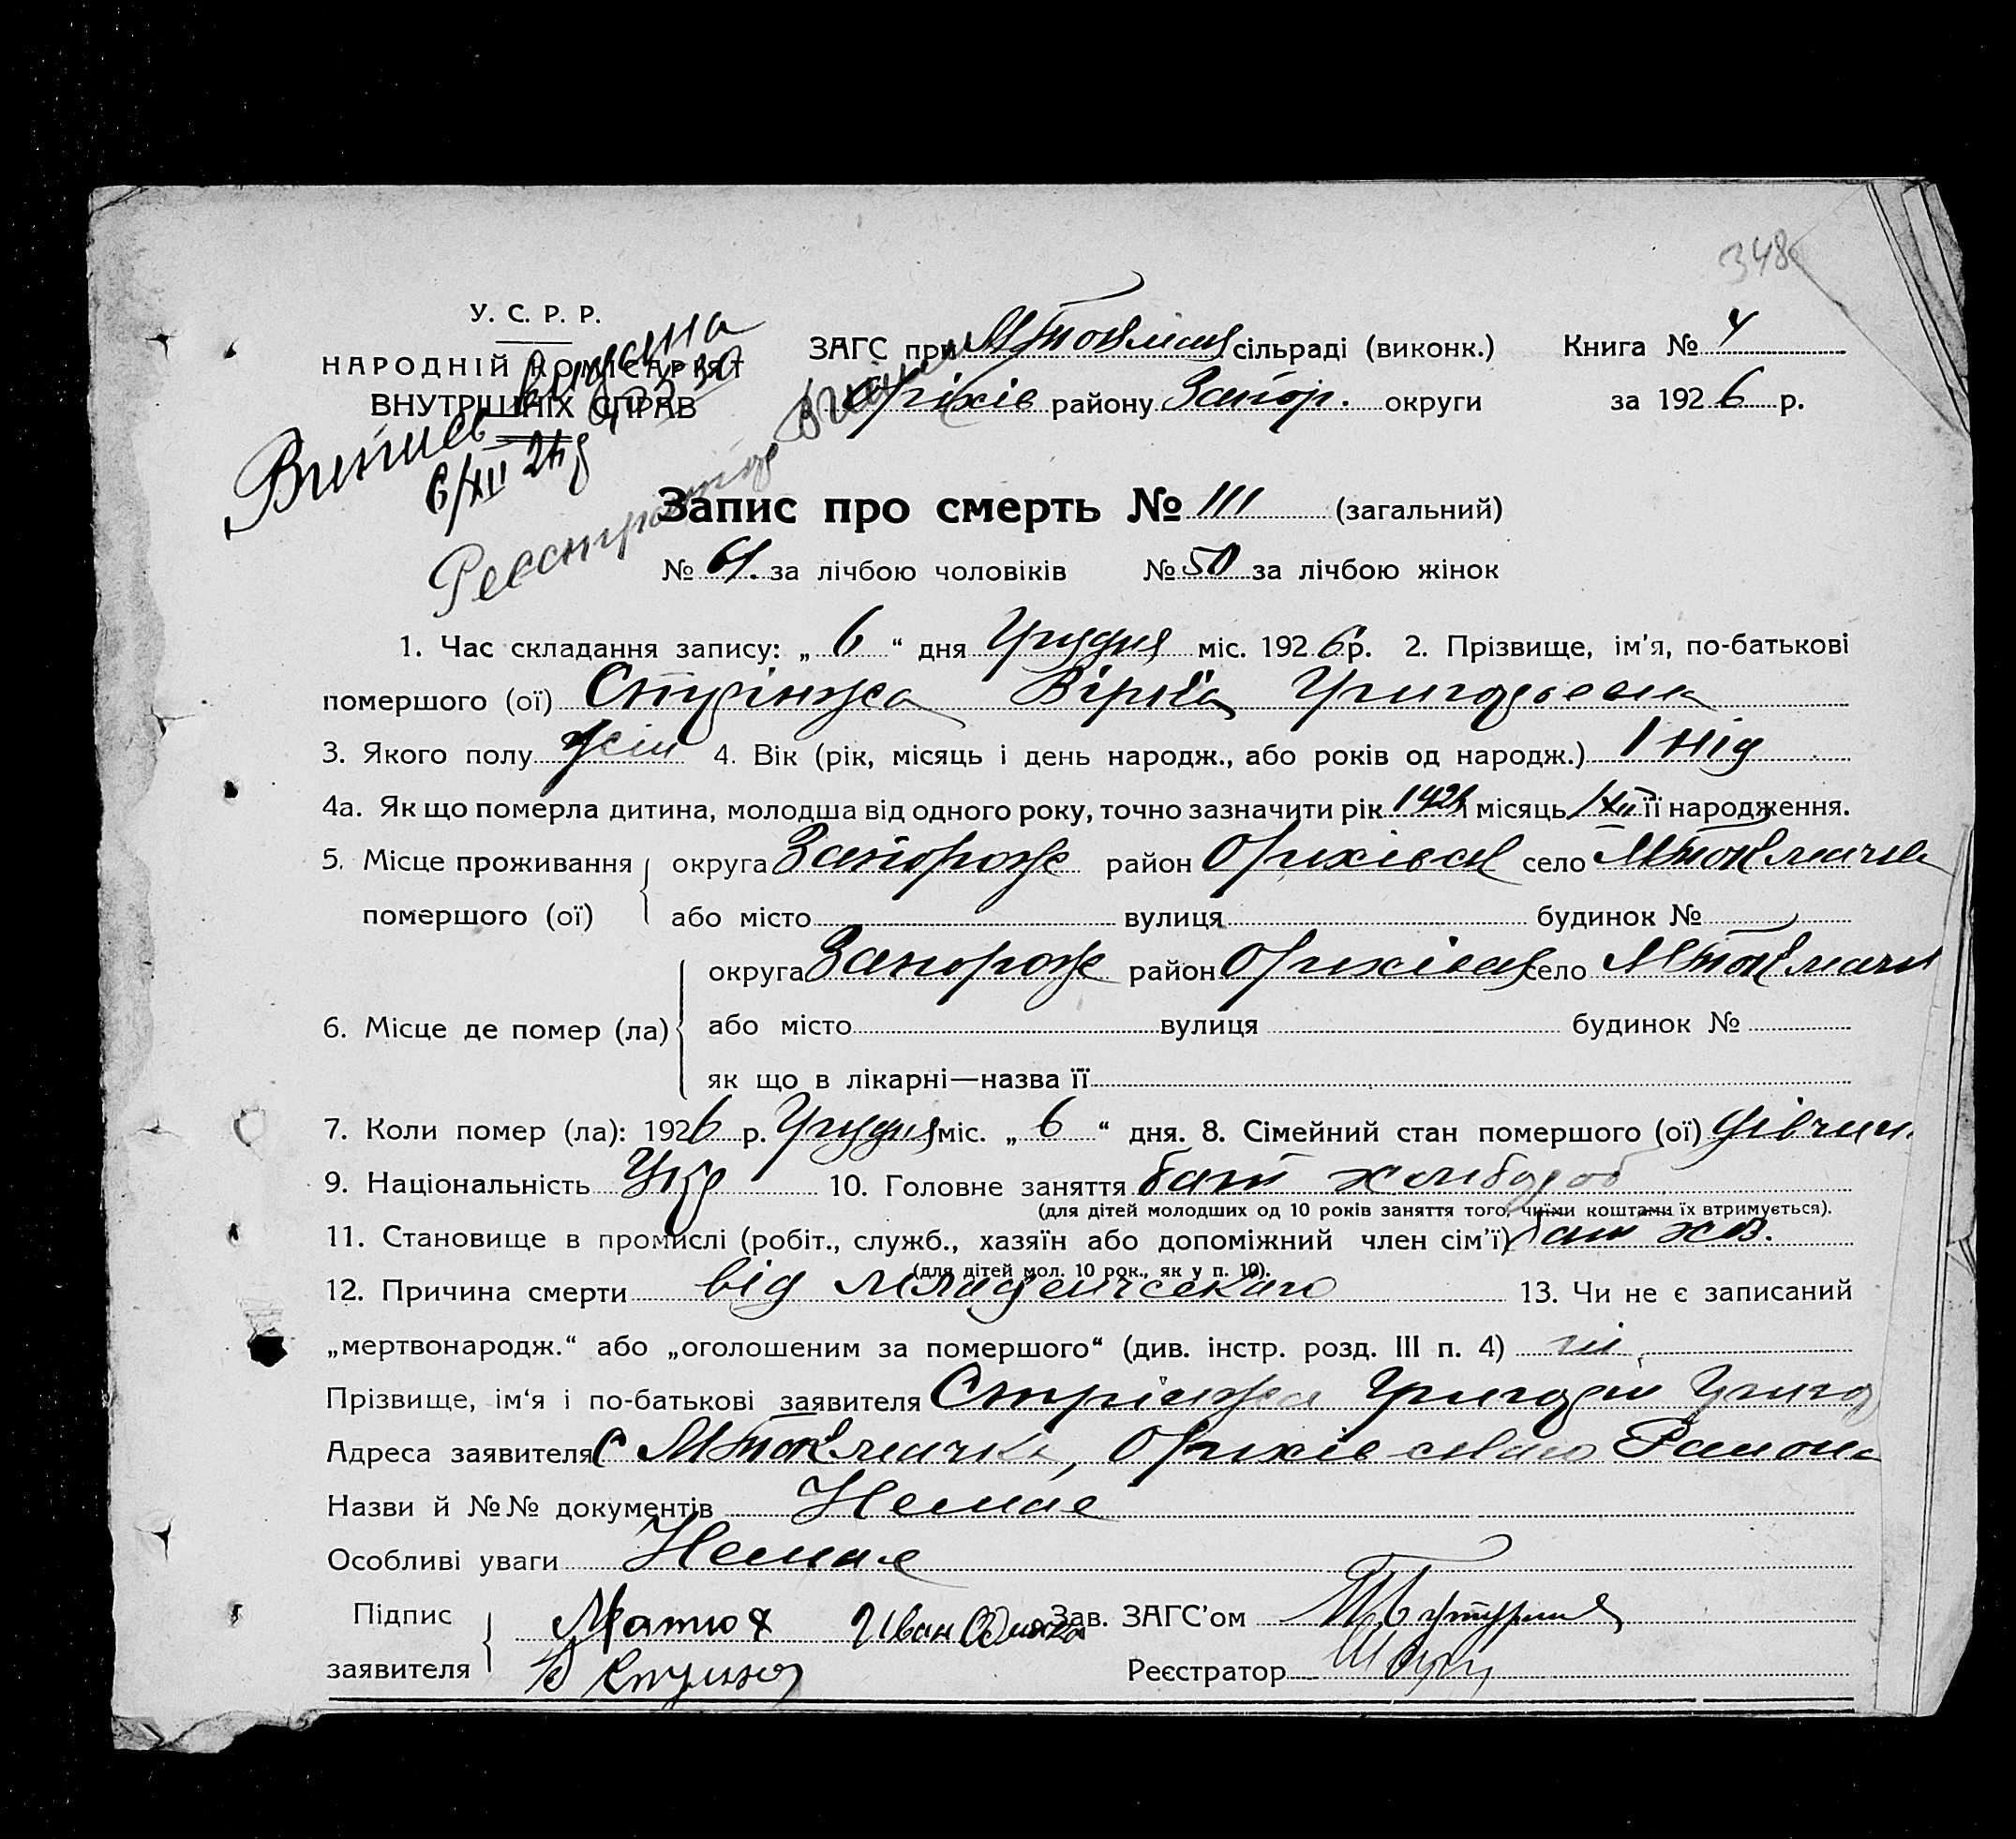 348
У. С. Р. Р.
НАРОДНІЙ КОМІСАРІЯТ
ВНУТРІШНІХ СПРАВ
Випись видана
6/XII 26 р
ЗАГС при М Токмац сільраді (виконк.) Книга № 4
Оріхів району Запор. округи за 1926 р.
Запис про смерть № 111 (загальний)
№ 61. за лічбою чоловіків № 50 за лічбою жінок
1. Час складання запису: „ 6 “ дня Грудня міс. 1926 р. 2. Прізвище, ім’я, по-батькові
помершого (ої) Григорьевна
3. Якого полу жін 4. Вік (рік, місяць і день народж., або років од народж.) 1 нід
4а. Як що померла дитина, молодша від одного року, точно зазначити рік 1926 і місяць 1/XII її народження.
5. Місце проживання округа Запорож район Оріхівськ село М Токмачка
помершого (ої) або місто вулиця будинок №
округа Запорож район Оріхівськ село М Токмачк
6. Місце де помер (ла) або місто вулиця будинок №
як що в лікарні—назва її
7. Коли помер (ла): 1926 р. Грудня міс. „ 6 “ дня. 8. Сімейний стан помершого (ої) дівчин.
9. Національність Укр 10. Головне заняття бать хлибороб
(для дітей молодших од 10 років заняття того, чиїми коштами їх втримується).
11. Становище в промислі (робіт., служб., хазяїн або допоміжний член сім’ї) бать хоз.
(для дітей мол. 10 рок., як у п. 10).
12. Причина смерти від младенчеського 13. Чи не є записаний
„мертвонародж.“ або „оголошеним за помершого“ (див. інстр. розд. III п. 4) ні
Прізвище, ім‘я і по-батькові заявителя Стрінжа Григорій Григо
Адреса заявителя С М Токмачка, Оріхівського Района
Назви й №№ документів Немає
Особливі уваги Немає
Підпис Матюх Иван Зав. ЗАГС’ом
заявителя Реєстратор